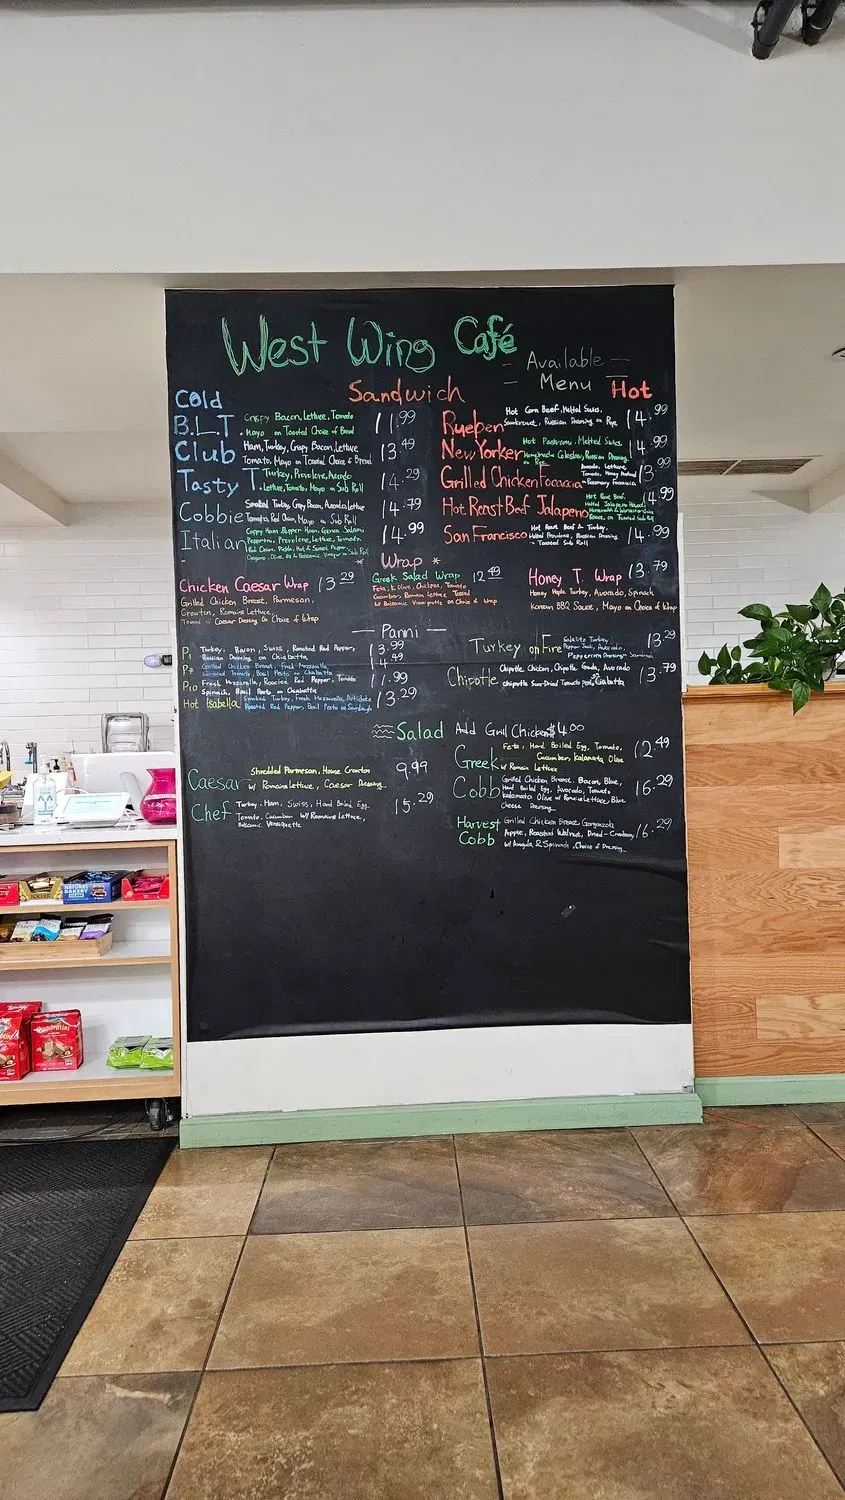 West Wing Café
Available
Menu
Sandwich
Cold
B.L.T.
Crispy Bacon, Lettuce, Tomato
Mayo on Toasted Choice of Bread
11.99
Club
Ham, Turkey, Crispy Bacon, Lettuce
Tomato, Mayo on Toasted Choice of Bread
13.49
Tasty T.
Turkey, Provolone, Avocado
Lettuce, Tomato, Mayo on Sub Roll
14.29
Cobbie
Smoked Turkey, Crispy Bacon, Avocado, Lettuce
Tomato, Red Onion, Mayo on Sub Roll
14.79
Italian
Ham, Genoa Salami
Pepperoni, Provolone, Lettuce, Tomato
Red Onion, Pickle, Hot & Sweet Pepper,
Oregano, Olive Oil & Balsamic Vinegar on Sub Roll
14.99
Hot
Rueben
Hot Corn Beef, Melted Swiss,
Sauerkraut, Russian Dressing on Rye
14.99
New Yorker
Hot Pastrami, Melted Swiss,
Homemade Coleslaw, Russian Dressing
on Rye
14.99
Grilled Chicken Foccacia
Avocado, Lettuce,
Tomato, Honey Mustard
Rosemary Foccacia
13.99
Hot Roast Beef Jalapeno
Hot Roast Beef,
on Toasted Sub Roll
14.99
San Francisco
Hot Roast Beef & Turkey,
Melted Provolone, Russian Dressing
on Toasted Sub Roll
14.99
* Wrap *
Chicken Caesar Wrap 13.29
Grilled Chicken Breast, Parmesan,
Crouton, Romaine Lettuce,
Tossed w/ Caesar Dressing On Choice of Wrap
Greek Salad Wrap 12.49
Feta, K. Olive, Chickpea, Tomato
Cucumber, Romain Lettuce Tossed
w/ Balsamic Vinaigrette on Choice of Wrap
Honey T. Wrap 13.79
Honey Maple Turkey, Avocado, Spinach
Korean BBQ Sauce, Mayo on Choice of Wrap
— Panni —
P1
Turkey, Bacon, Swiss, Roasted Red Pepper,
Russian Dressing on Chiabatta
13.99
P7
Grilled Chicken Breast, Fresh Mozzarella
Sundried Tomato, Basil Pesto on Chiabatta
14.49
P10
Fresh Mozzarella, Roasted Red Pepper, Tomato
Spinach, Basil Pesto on Chiabatta
11.99
Hot Isabella
Smoked Turkey, Fresh Mozzarella, Artichoke
Roasted Red Pepper, Basil Pesto on
13.29
Turkey on Fire
Turkey
Pepper Jack, Avocado,
Peppercorn Dressing
13.29
Chipotle
Chipotle Chicken, Chipotle Gouda, Avocado
Chipotle Sun-Dried Tomato Ciabatta
13.79
Salad Add Grill Chicken $4.00
Caesar
Shredded Parmesan, House Crouton
w/ Romaine Lettuce, Caesar Dressing
9.99
Chef
Turkey, Ham, Swiss, Hard Boiled Egg,
Tomato, Cucumber w/ Romaine Lettuce,
Balsamic Vinaigrette
15.29
Greek
Feta, Hard Boiled Egg, Tomato,
Cucumber, Kalamata Olive
w/ Romain Lettuce
12.49
Cobb
Grilled Chicken Breast, Bacon, Blue,
Hard Boiled Egg, Avocado, Tomato,
Kalamata Olive w/ Romaine Lettuce, Blue
Cheese Dressing
16.29
Harvest
Cobb
Grilled Chicken Breast Gorgonzola
Apple, Roasted Walnut, Dried-Cranberry
w/ Arugula & Spinach, Choice of Dressing
16.29